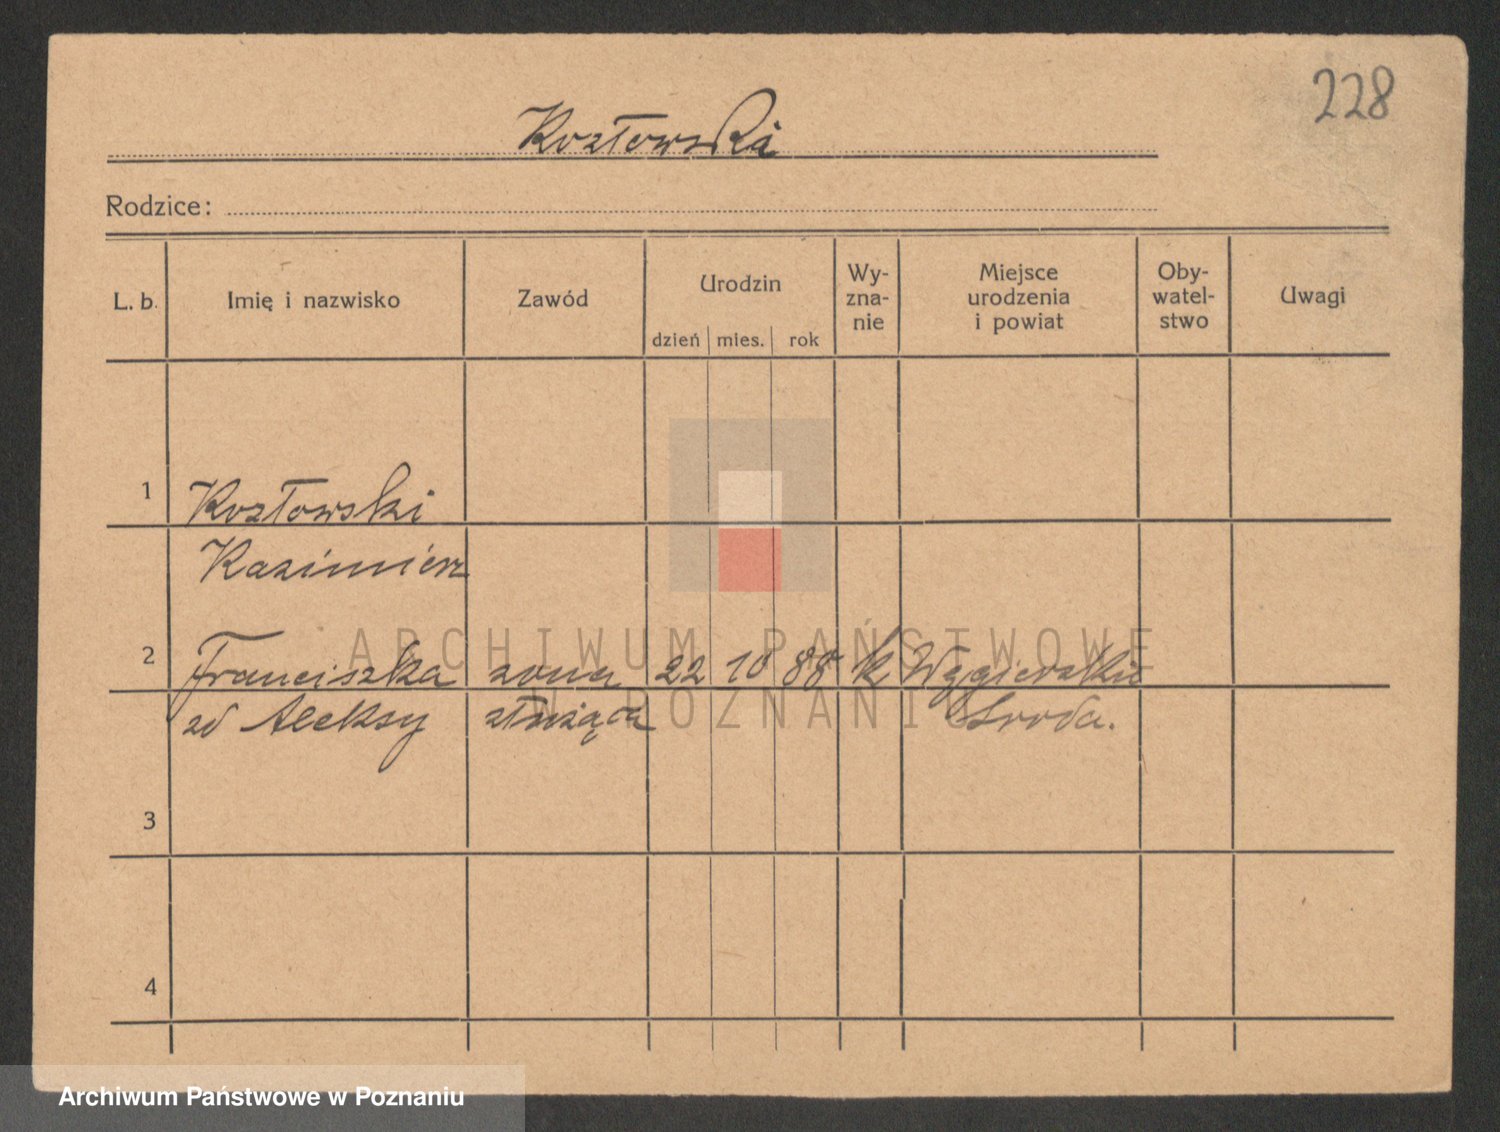 228
Kozłowska
Rodzice:
L. b. Imię i nazwisko Zawód Urodzin dzień mies. rok Wy-zna-nie Miejsce urodzenia i powiat Oby-watel-stwo Uwagi
1 Kozłowski
Kazimierz
2 Franciszka żona 22 10 88 k Węgierskie
zd Aleksy służąca Środa.
3
4
ARCHIWUM PAŃSTWOWE
W POZNANIU
Archiwum Państwowe w Poznaniu